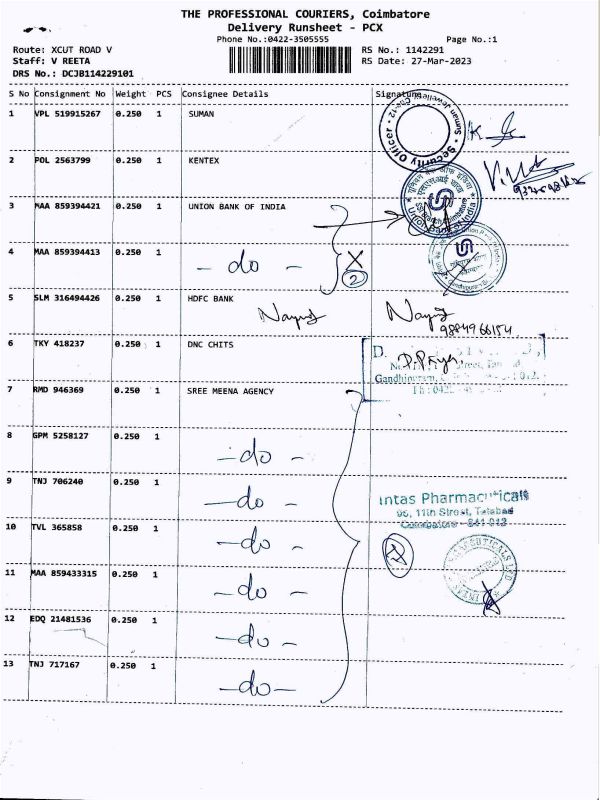 THE PROFESSIONAL COURIERS, Coimbatore
Delivery Runsheet - PCX
Phone No.:0422-3505555
Page No.:1
Route: XCUT ROAD V
RS No.: 1142291
Staff: V REETA
RS Date: 27-Mar-2023
DRS No.: DCJB114229101
S No Consignment No Weight PCS Consignee Details Signature
1 VPL 519915267 0.250 1 SUMAN
Suman Jewellers
Security Officer
2 POL 2563799 0.250 1 KENTEX
3 MAA 859394421 0.250 1 UNION BANK OF INDIA
Union Bank of India
4 MAA 859394413 0.250 1 - do -
2
5 SLM 316494426 0.250 1 HDFC BANK
9884966154
6 TKY 418237 0.250 1 DNC CHITS
D. Priya
Gandhipuram,
7 RMD 946369 0.250 1 SREE MEENA AGENCY
8 GPM 5258127 0.250 1 -do -
9 TNJ 706240 0.250 1 -do -
Intas Pharmaceuticals
96, 11th Street, Tatabad
Coimbatore - 641 012
10 TVL 365858 0.250 1 -do -
11 MAA 859433315 0.250 1 -do -
12 EDQ 21481536 0.250 1 -do -
13 TNJ 717167 0.250 1 -do-